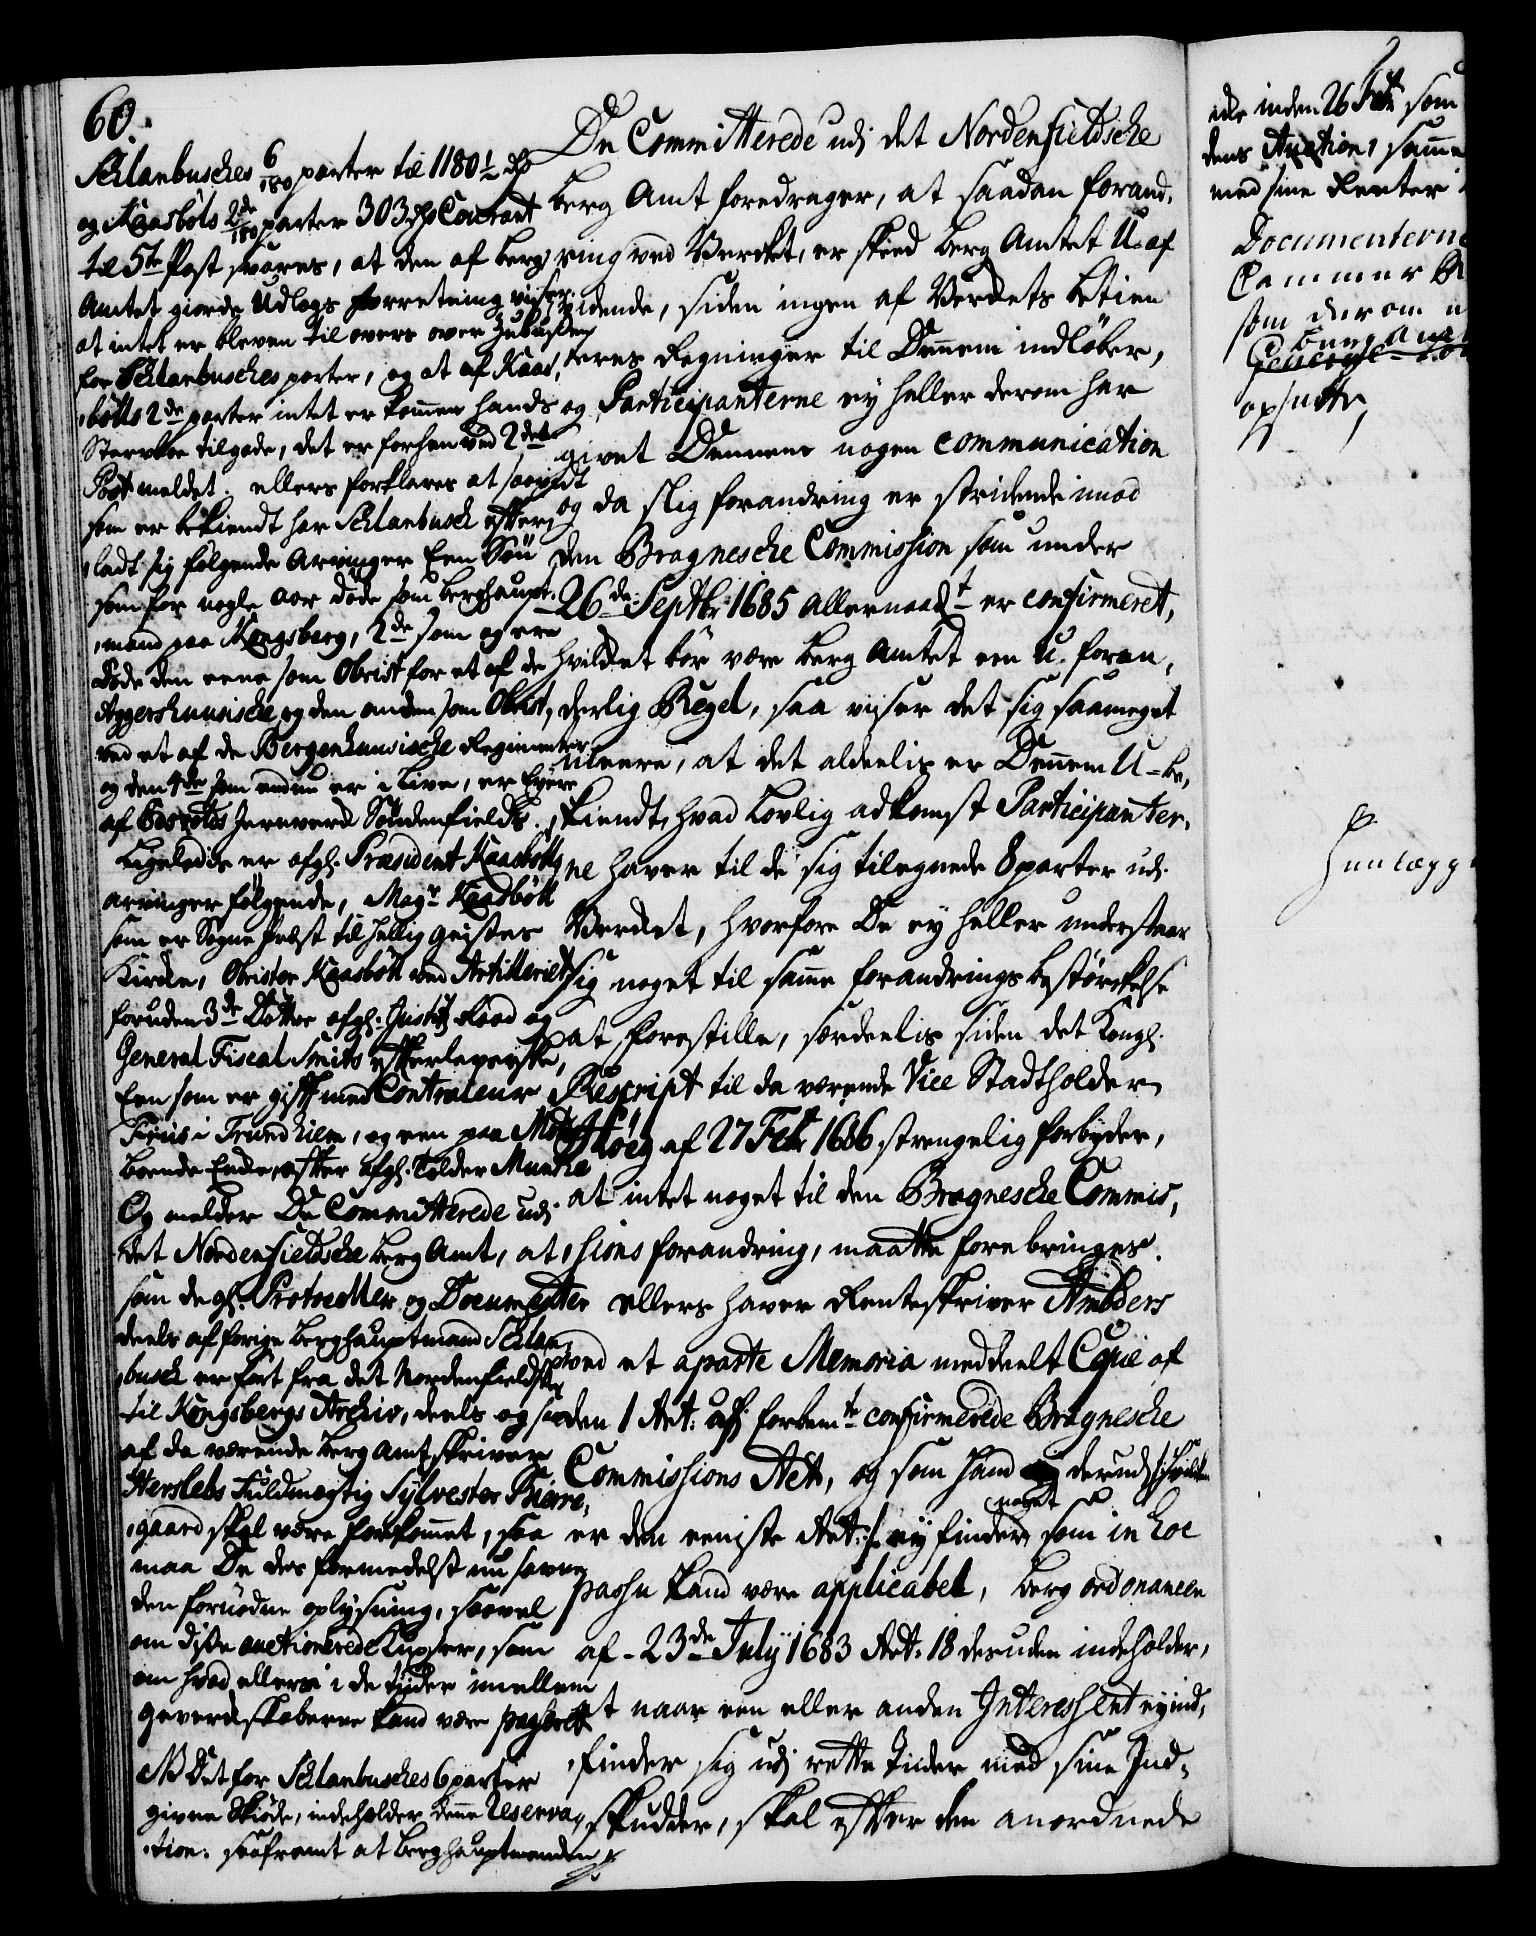 60.
Schlanbusches 6/180 parter til 1180½ rd
og Kaasböls 2de/180 parter 303 rd Courant
til 5te Post svares, at den af berg
Amtet giorde Udlegs forretning viser,
at intet er bleven til overs over Zubusden
for Schlanbusches parter, og at af Kaas,
,bölls 2de parter intet er kommen hands
Sterboe tilgode, det er forhen ved 2det
Post meldet. ellers forklares at saavidt
som er bekiendt har Schlanbusch efter,
,ladt sig fölgende Arvinger Een Sön
som for nogle Aar döde som berghaupt,
,mand paa Kongsberg, 2de som og ere
Döde den eene som Obrist for et af de
Aggershuusische, og den anden som Obrist,
ved et af de Bergenhuusische Regimenter
og den 4de som endnu er i Live, er Eyere
af Fossotös Jernverck Söndenfields.
Ligeledes er afgl. Præsident Kaasbölls
arvinger fölgende, Magr Kaasböll
som er Sogne Præst til Hellig geistes
Kirke, Obrister Kaasböll ved Artilleriet
foruden 3de Döttre afgl. Justitz Raad og
General Fiscal Smits efterleverske,
Een som er gift med Controleur
Friis i Trundhiem, og een paa
boende Enke efter afgl. Tolder Munthe
Og melder De Committerede udj
det Nordenfieldske berg Amt, at
som de gl. Protocoller og Documenter
deels af forige berghauptmand Schlan,
,busch er fört fra det Nordenfieldske
til Kongsbergs Archiv, deels og siden
af da værende berg Amtskriver
Herslebs Fuldmegtig Sylvester Bierre,
,gaard skal være forkommet, saa
maa De des formedelst nu savne
den fornödne oplysning, saavel
om disse auctionerede Kuxser, som
om hvad ellers i de tyder imellem
gewerckskaberne kand være passeret
NB Det for Schlanbusches 6 parter
givne Skiöde, indeholder denne Reserva,
,tion: saafremt at berghauptmanden
De Committerede udj det Nordenfieldsche
berg Amt foredrager, at saadan forand,
,ring ved Vercket, er skeed berg Amtet U-af
vidende, siden ingen af Verckets betien
,ternes Regninger til Dennem indlöber,
og Participanterne ey heller derom har
givet Dennem nogen communication
og da slig forandring er stridende imod
den Bragnesche Commission som under
26de Septbr 1685 allernaadt er confirmeret,
hvilket bör være berg Amtet een U-foran,
,derlig Regel, saa viser det sig saameget
meere, at det aldeelis er Dennem U-be,
,kiendt, hvad Lovlig adkomst Participanter,
,ne haver til de sig tilegnede 8 parter udj
Vercket, hvorfore De ey heller understaar
sig noget til samme forandrings bestörckelse
at forestille, særdeelis siden det Kongl.
Rescript til da værende Vice Stadtholder
Höeg af 27 Febr 1686 strengelig forbyder,
at intet noget til den Bragnesche Commis,
,sions forandring, maatte forebringes.
ellers haver Renteskriver Ambders
ved et aparte Memoria meddeelt Copie af
den 1 Art: udj forbemte confirmerede Bragnesche
Commissions Act, og som hand derudj /:hvilken
er den eeniste Art:/ ey finder noget som in hoc
passu kand være applicabel, berg ordonancen
af 23de July 1683 Art: 18 desuden indeholder,
at naar een eller anden Interessent ey ind,
,finder sig udj rette Tider med sine Ind,
,skudder, skal efter den anordnede
inden 26 Febr som
dens Auction, samme
med sine Renter
Documenterne
Cammer
som derom
Berg Amt
opsætte,